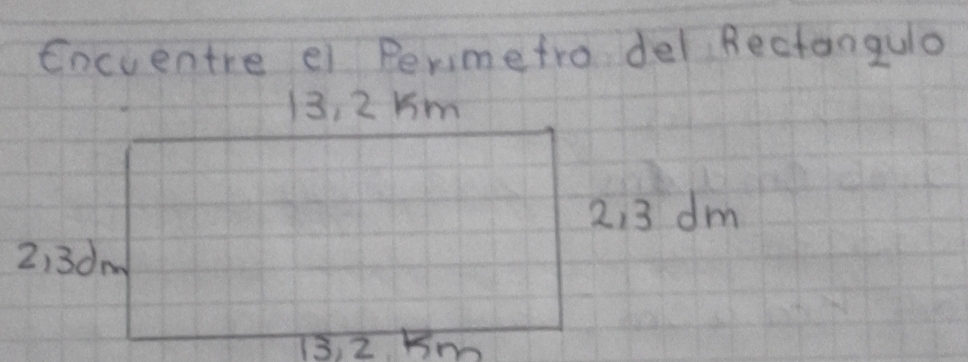 Encuentre el Perimetro del Rectangulo
13,2 Km
2,3 dm
2,3dm
13,2 Km